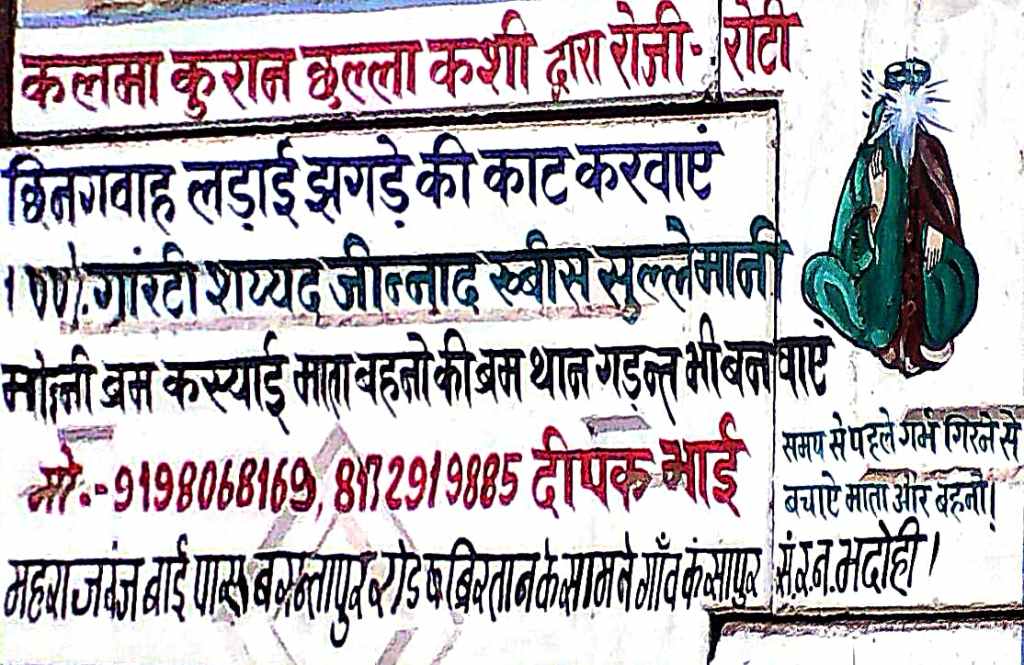 कलमा कुरान छल्ला कशी द्वारा रोजी- रोटी
छिनगवाह लड़ाई झगड़े की काट करवाएं
100%. गांरटी शय्यद जीन्नाद ख्बीस सुल्लेमानी
मोन्नी ब्रम कस्याई माता बहनो की ब्रम थान गड़न्त भी बनवाएं
मो.-9198068169, 8172919885 दीपक भाई
समय से पहले गर्भ गिरने से
बचाऐ माता और बहनो।
महराजगंज बाई पास बसन्तापुर रोड कब्रिस्तान के सामने गाँव कंसापुर सं.र.न. भदोही।